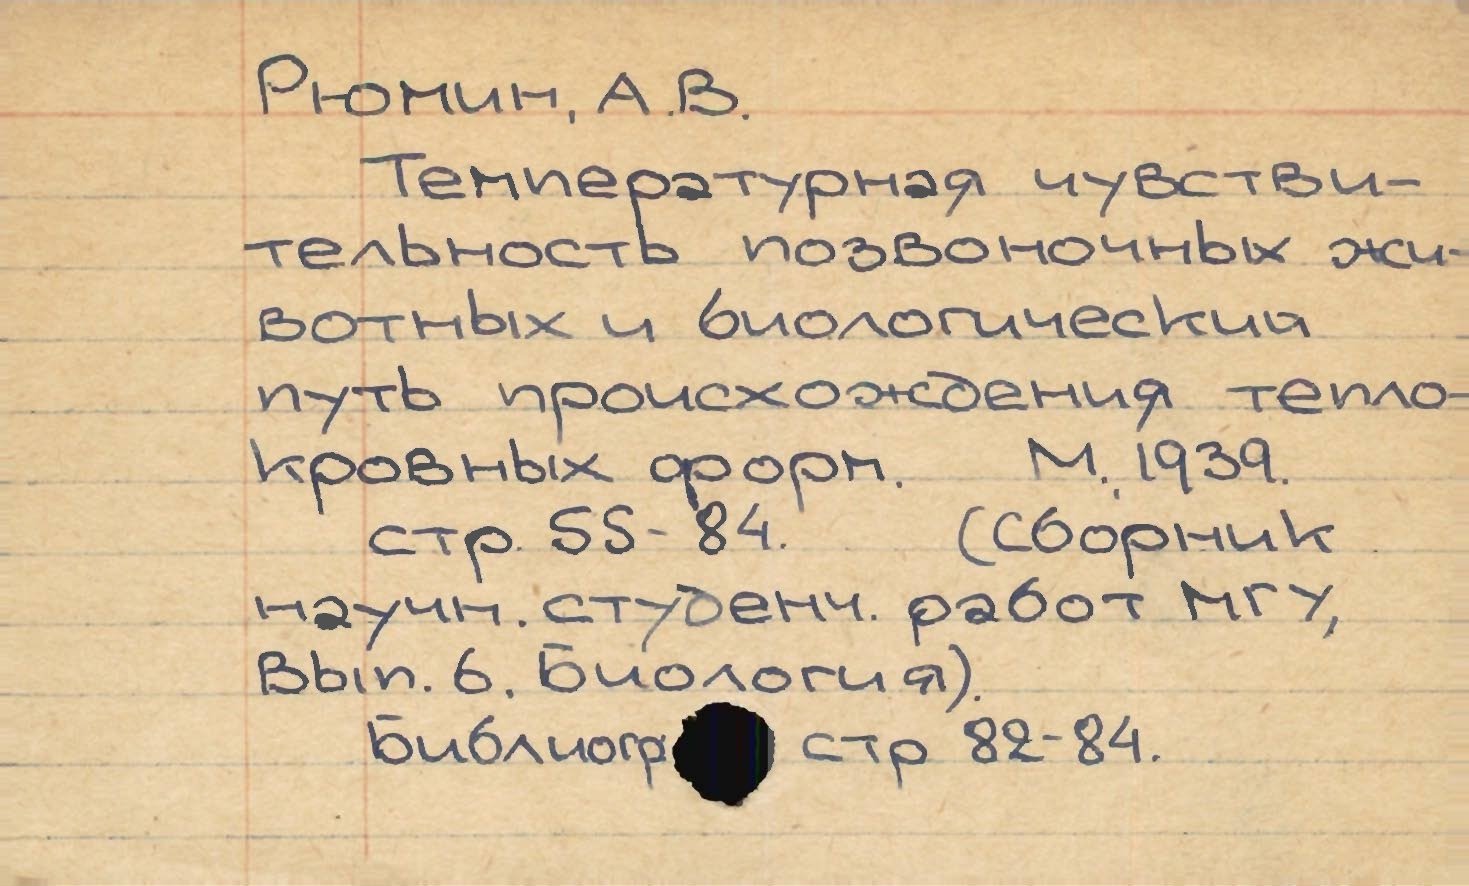 Рюмин, А.В.
Температурная чувстви-
тельность позвоночных жи-
вотных и биологический
путь происхождения тепло-
кровных форм. М., 1939.
стр. 55-84. (Сборник
научн. студенч. работ МГУ,
Вып. 6. Биология).
Библиогр стр 82-84.